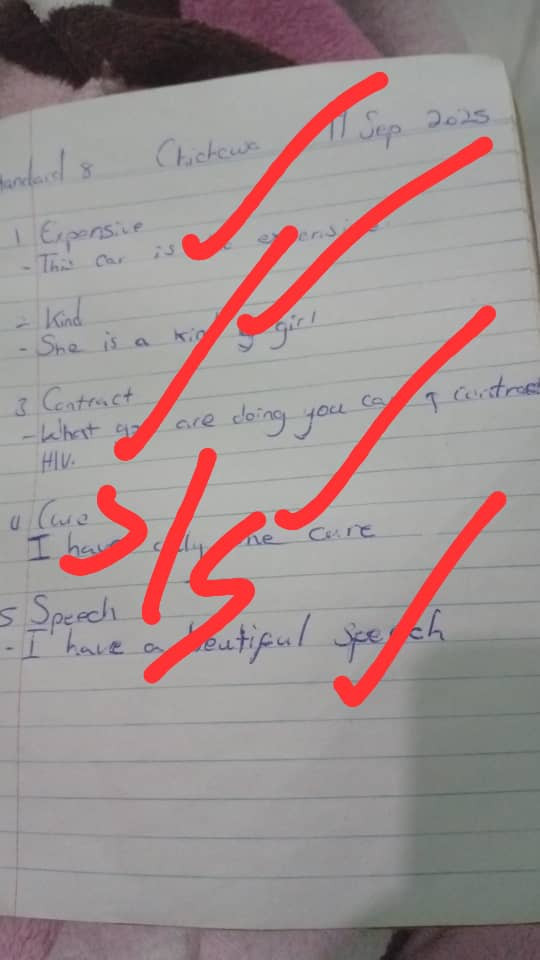 Standard 8 Chichewa 11 Sep 2025
1 Expensive
- This car is expensive.
2 Kind
- She is a kind girl
3 Contract
- What are doing you can contract
HIV.
4 Cure
I have only one cure
5 Speech
- I have a beutiful speech
5/5